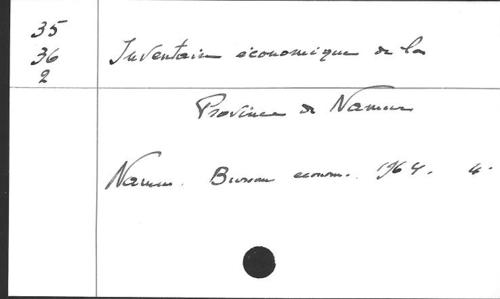 35
36
2
Inventaire économique de la
Province de Namur
Namur. Bureau économ. 1964. 4.